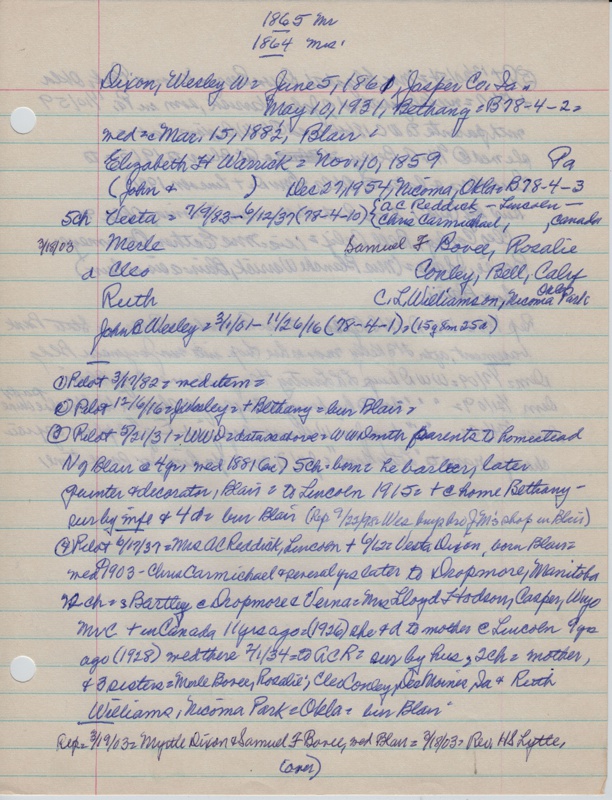 1865 Mr
1864 Mrs.
Dixon, Wesley W = June 5, 1861, Jasper Co, Ia =
May 10, 1931, Bethany = B78-4-2 =
med = c Mar. 15, 1882, Blair =
Elizabeth H Warrick = Nov. 10, 1859 Pa
(John & ) Dec 27, 1954, Nicoma, Okla = B78-4-3
5ch Vesta = 7/9/83 - 6/12/37 (78-4-10) { AC Reddick - Lincoln -
Chris Carmichael, , Canada
3/18/03 Merle Samuel F Bovee, Rosalie
a Cleo Conley, Bell, Calif
Ruth C. L. Williamson, Nicoma Park Okla
John C Wesley = 3/1/01 - 11/26/16 (78-4-1) = (15y 8m 25d)
① Pilot 3/17/82 = med item =
② Pilot 12/6/16 = J Wesley = + Bethany = bur Blair =
③ Pilot 5/21/31 = WWD = data as above = WW Dmth parents to homestead
N of Blair @ 4yrs, med 1881 (sic) 5ch = born = he barber, later
painter & decorator, Blair = to Lincoln 1915 = + c home Bethany -
sur by wife & 4 d = bur Blair (Rep 9/22/98 = Wes buys bro J M's shop in Blair)
④ Pilot 6/17/37 = Mrs AC Reddick, Lincoln + 6/12 = Vesta Dixon, born Blair =
med 1903 - Chris Carmichael & several yrs later to Dropmore, Manitoba
2 ch = s Bartley c Dropmore & Verna = Mrs Lloyd Hodson, Casper, Wyo
Mr C + in Canada 11 yrs ago = (1926) she & d to mother c Lincoln 9 yrs
ago (1928) med there 2/1/34 = to ACR = sur by hus, 2ch = mother,
& 3 sisters = Merle Bovee, Rosalie, Cleo Conley, Des Moines, Ia & Ruth
Williams, Nicoma Park = Okla = bur Blair
Rep = 3/19/03 = Myrtle Dixon & Samuel F Bovee, med Blair = 3/18/03 = Rev. HS Lytle,
(over)